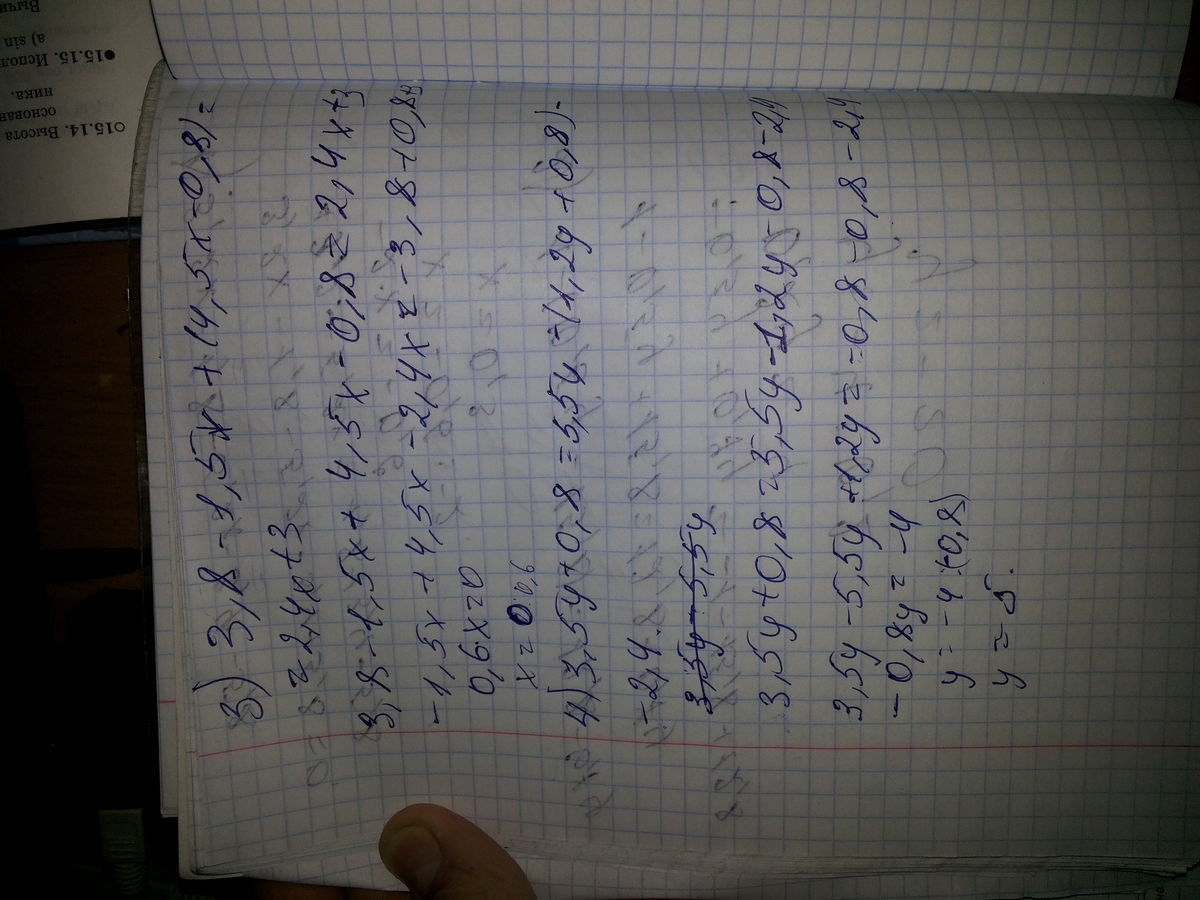 3) 3,8 - 1,5x + (4,5x - 0,8) =
= 2,4x + 3
3,8 - 1,5x + 4,5x - 0,8 = 2,4x + 3
- 1,5x + 4,5x - 2,4x = - 3,8 + 0,8 +3
0,6x = 0
x = 0 : 0,6
4) 3,5y + 0,8 = 5,5y - (1,2y + 0,8) -
- 2,4.
3,5y - 5,5y
3,5y + 0,8 = 5,5y - 1,2y - 0,8 - 2,4
3,5y - 5,5y + 1,2y = - 0,8 - 0,8 - 2,4
- 0,8y = - 4
y = - 4 : (0,8)
y = - 5.
○15.14. Высота
основан
ника.
●15.15. Испол
а) sin
Вычи